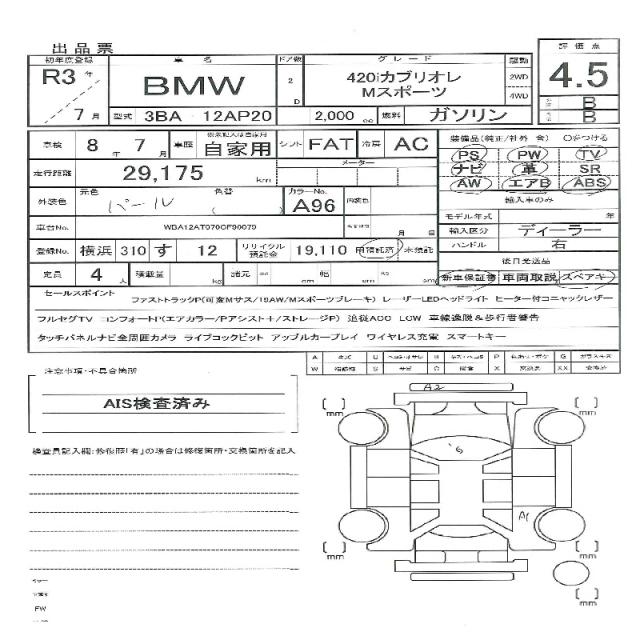 出品票
初年度登録 車名 ドア数 グレード 駆動 評価点
R3年 BMW 2 D 420iカブリオレ 2WD 4.5
7月 Mスポーツ 4WD B
型式 3BA 12AP20 2,000 cc 燃料 ガソリン B
車検 8年 7月 車歴 自家用 シフト FAT 冷房 AC 装備品(純正/社外 含) ○をつける
走行距離 29,175 km メーター PS PW TV
ナビ 革 SR
外装色 元色 パール 色替 ( ) カラーNo. A96 内装色 AW エアB ABS
輸入車のみ
車台No. WBA12AT070CF90079 月 日 モデル年式 年
輸入区分 ディーラー
登録No. 横浜 310 す 12 リサイクル預託金 19,110 預託済 未預託 ハンドル 右
後日発送品
定員 4人 積載量 kg 諸元 長 cm 幅 cm 高 cm 新車保証書 車両取説 スペアキー
セールスポイント ファストラックP(可変Mサス/19AW/Mスポーツブレーキ) レーザーLEDヘッドライト ヒーター付コニャックレザー
フルセグTV コンフォートP(エアカラー/Pアシスト+/ストレージP) 追従ACC LCW 車線逸脱&歩行者警告
タッチパネルナビ全周囲カメラ ライブコックピット アップルカープレイ ワイヤレス充電 スマートキー
A U B P G
W S C X XX
注意事項・不具合箇所
AIS検査済み
検査員記入欄:修復歴「有」の場合は修復箇所・交換箇所を記入
A2
mm
mm
A1
mm
mm
mm